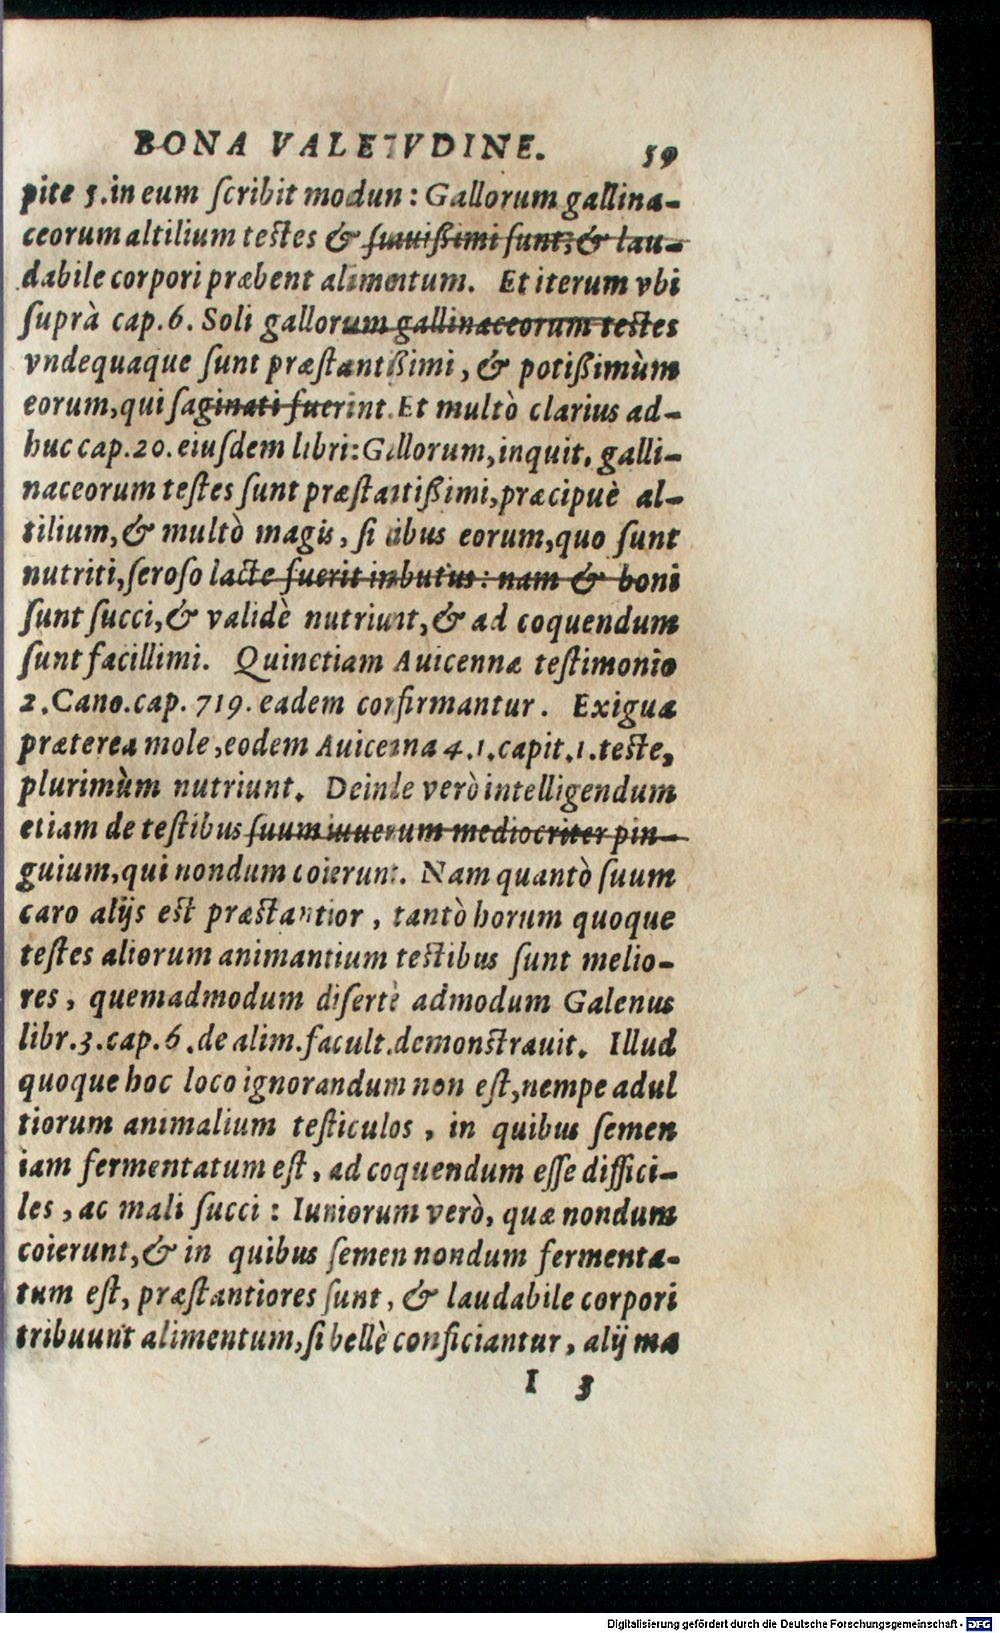 BONA VALETVDINE. 59
pite 3. in eum ſcribit modun: Gallorum gallina-
ceorum altilium teſtes & ſuauißimi ſunt, & lau-
dabile corpori præbent alimentum. Et iterum vbi
ſuprà cap. 6. Soli gallorum gallinaceorum teſtes
vndequaque ſunt præſtantißimi, & potißimùm
eorum, qui ſaginati fuerint. Et multò clarius ad-
huc cap. 20. eiuſdem libri: Gallorum, inquit, galli-
naceorum teſtes ſunt præſtantißimi, præcipuè al-
tilium, & multò magis, ſi cibus eorum, quo ſunt
nutriti, ſeroſo lacte fuerit inbutus: nam & boni
ſunt ſucci, & validè nutriunt, & ad coquendum
ſunt facillimi. Quinctiam Auicennæ teſtimonio
2. Cano. cap. 719. eadem confirmantur. Exigua
præterea mole, eodem Auicenna 4. 1. capit. 1. teſte,
plurimùm nutriunt. Deinde verò intelligendum
etiam de teſtibus ſuum iuuenum mediocriter pin-
guium, qui nondum coierunt. Nam quantò ſuum
caro alijs eſt præſtantior, tantò horum quoque
teſtes aliorum animantium teſtibus ſunt melio-
res, quemadmodum diſertè admodum Galenus
libr. 3. cap. 6. de alim. facult. demonſtrauit. Illud
quoque hoc loco ignorandum non eſt, nempe adul
tiorum animalium teſticulos, in quibus ſemen
iam fermentatum eſt, ad coquendum eſſe diffici-
les, ac mali ſucci: Iuniorum verò, quæ nondum
coierunt, & in quibus ſemen nondum fermenta-
tum eſt, præſtantiores ſunt, & laudabile corpori
tribuunt alimentum, ſi bellè conficiantur, alij ma
I 3
Digitalisierung gefördert durch die Deutsche Forschungsgemeinschaft - DFG